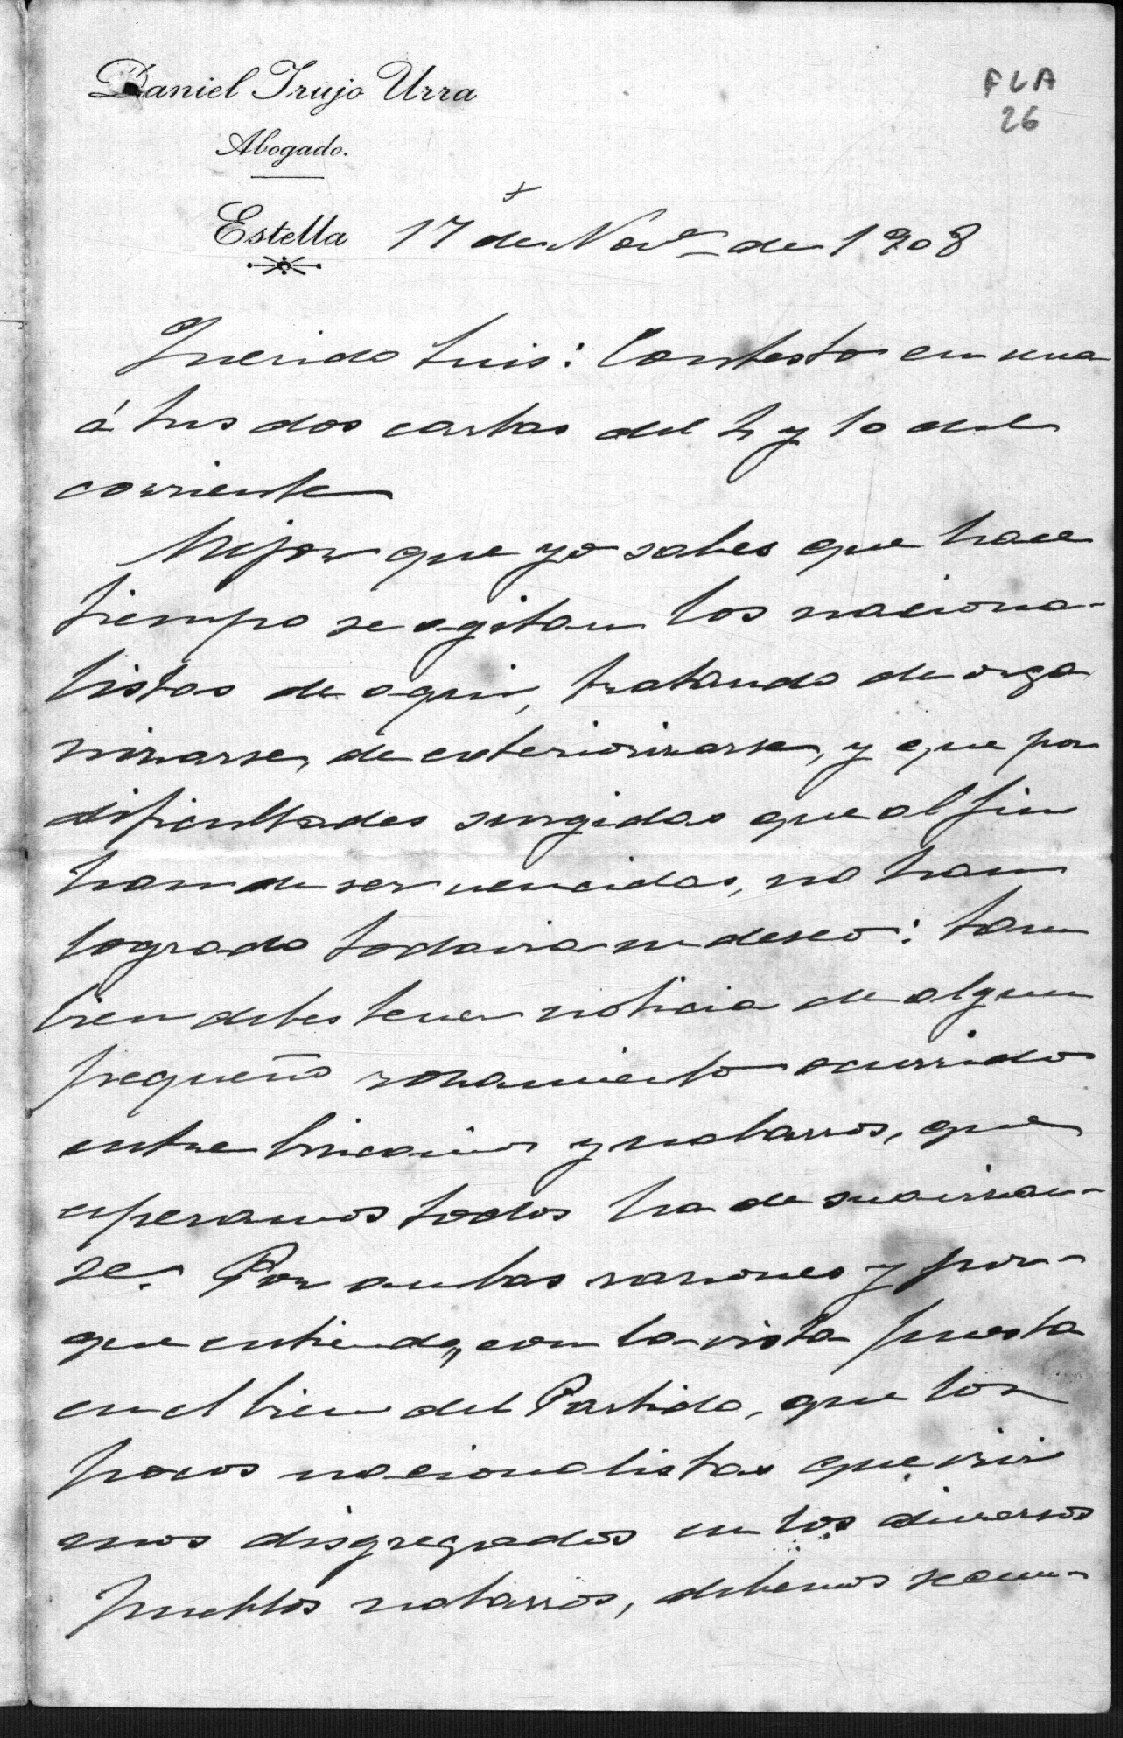 Daniel Irujo Urra
FLA
26
Abogado.
+
Estella 17 de Nove de 1908
Querido Luis: Contesto en una
á tus dos cartas del 4 y 10 del
corriente
Mejor que yo sabes que hace
tiempo se agitan los naciona-
listas de aqui, tratando de orga
nizarse, de exteriorizarse, y que por
dificultades surgidas que al fin
han de ser vencidas, no han
logrado todavia su deseo: tam
bien debes tener noticia de algun
pequeño rozamiento ocurrido
entre bizcainos y nabarros, que
esperamos todos ha de suavizar-
se. Por ambas razones y por-
que entiendo, con la vista puesta
en el bien del Partido, que los
pocos nacionalistas que vivi
mos disgregados en los diversos
pueblos nabarros, debemos secun-